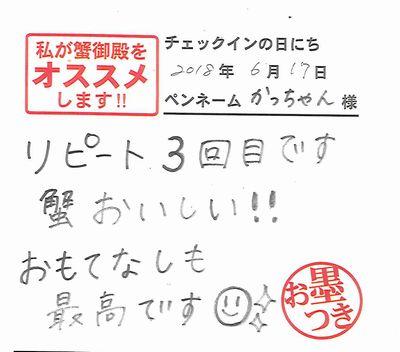 私が蟹御殿を
オススメ
します!!
チェックインの日にち
2018年 6月 17日
ペンネーム かっちゃん 様
リピート3回目です
蟹おいしい!!
おもてなしも
最高です
お墨つき